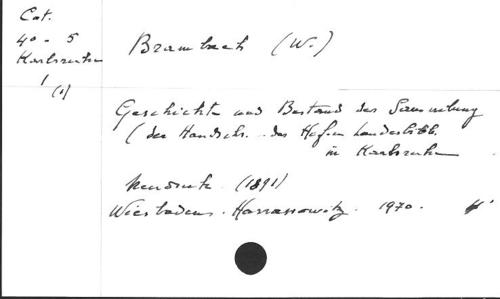 Cat.
40 - 5
Karlsruhe
1
(1)
Brambach (W.)
Geschichte und Bestand der Sammlung
( der Handschr. der Hof- u Landesbibl.
in Karlsruhe
Neudruck. (1891)
Wiesbaden. Harrassowitz. 1970.